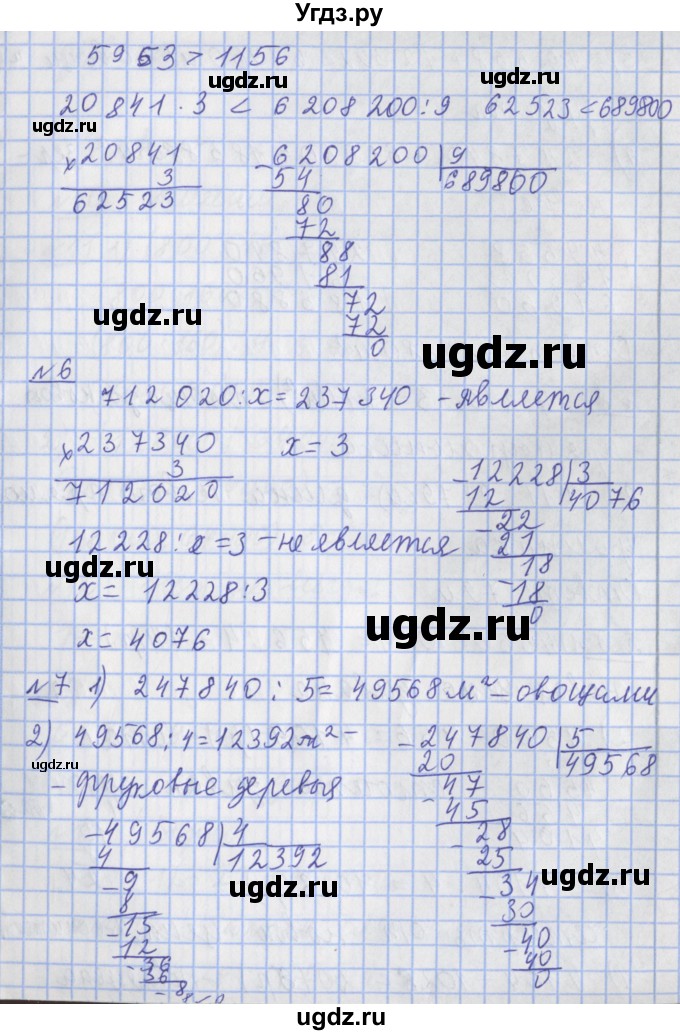 Угдз.ру
5953 > 1156
ugdz.ru
ugdz.ru
20841 · 3 < 6 208 200 : 9   62523 < 689800
ugdz.ru
× 20841
3
62523
- 6208200 | 9
54   689800
80
72
88
81
72
72
0
ugdz.ru
ugdz.ru
ugdz.ru
№6
712 020 : x = 237 340 - является
× 237340
3
712020
x = 3
- 12228 | 3
12   4076
- 22
21
18
- 18
0
ugdz.ru
12228 : x = 3 - не является
x = 12228 : 3
x = 4076
ugdz.ru
№7 1) 247840 : 5 = 49568 м² - овощами
2) 49568 : 4 = 12392 м² -
- фруховые деревья
ugdz.ru
- 247840 | 5
20   49568
- 47
45
- 28
25
- 34
30
- 40
40
0
- 49568 | 4
4   12392
- 9
8
- 15
12
- 36
36
- 8
ugdz.ru
ugdz.ru
ugdz.ru